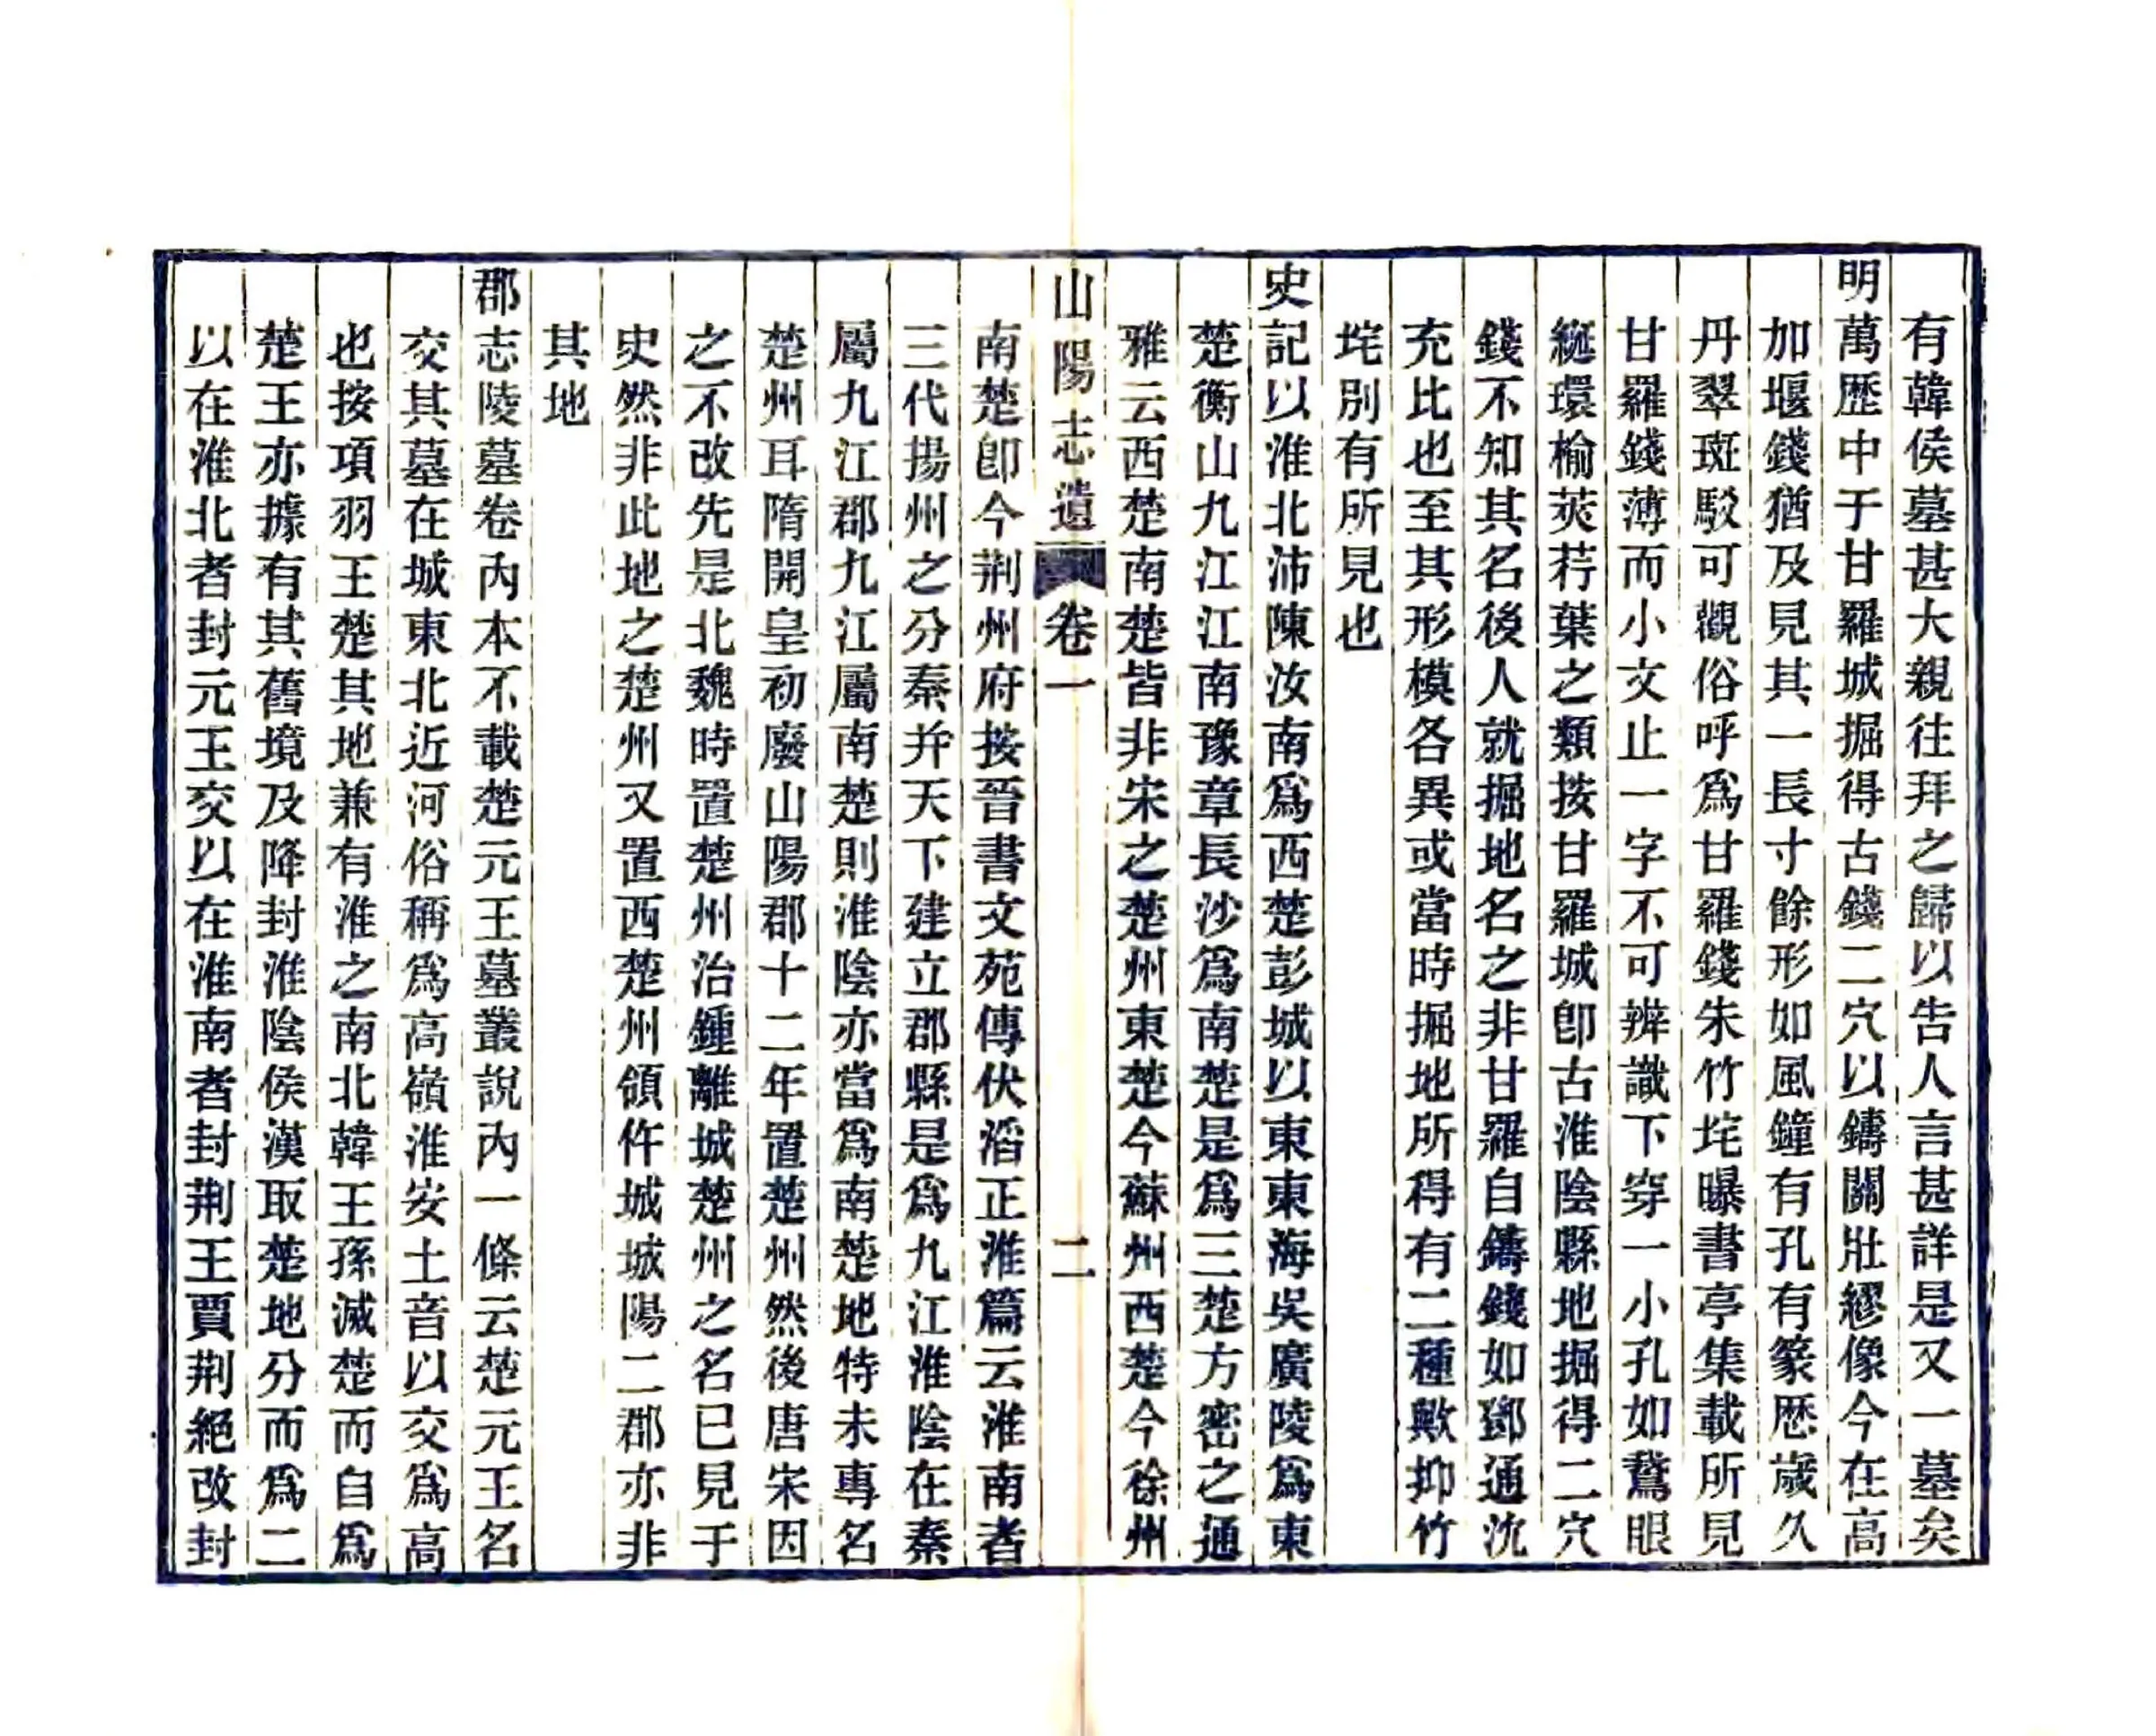 有韓侯墓甚大親往拜之歸以告人言甚詳是又一墓矣
明萬歴中于甘羅城掘得古錢二穴以鑄關壯繆像今在高
加堰錢猶及見其一長寸餘形如風鐘有孔有篆歴歲久
丹翠斑駁可觀俗呼爲甘羅錢朱竹垞曝書亭集載所見
甘羅錢薄而小文止一字不可辨識下穿一小孔如鵞眼
綖環榆莢荇葉之類按甘羅城卽古淮陰縣地掘得二穴
錢不知其名後人就掘地名之非甘羅自鑄錢如鄧通沈
充比也至其形模各異或當時掘地所得有二種歟抑竹
垞別有所見也
史記以淮北沛陳汝南爲西楚彭城以東東海吳廣陵爲東
楚衡山九江江南豫章長沙爲南楚是爲三楚方密之通
雅云西楚南楚皆非宋之楚州東楚今蘇州西楚今徐州
山陽志遺 卷一 二
南楚卽今荆州府按晉書文苑傳伏滔正淮篇云淮南者
三代揚州之分秦并天下建立郡縣是爲九江淮陰在秦
屬九江郡九江屬南楚則淮陰亦當爲南楚地特未專名
楚州耳隋開皇初廢山陽郡十二年置楚州然後唐宋因
之不改先是北魏時置楚州治鍾離城楚州之名已見于
史然非此地之楚州又置西楚州領仵城城陽二郡亦非
其地
郡志陵墓卷內本不載楚元王墓叢說內一條云楚元王名
交其墓在城東北近河俗稱爲高嶺淮安土音以交爲高
也按項羽王楚其地兼有淮之南北韓王孫滅楚而自爲
楚王亦據有其舊境及降封淮陰侯漢取楚地分而爲二
以在淮北者封元王交以在淮南者封荆王賈荆絕改封